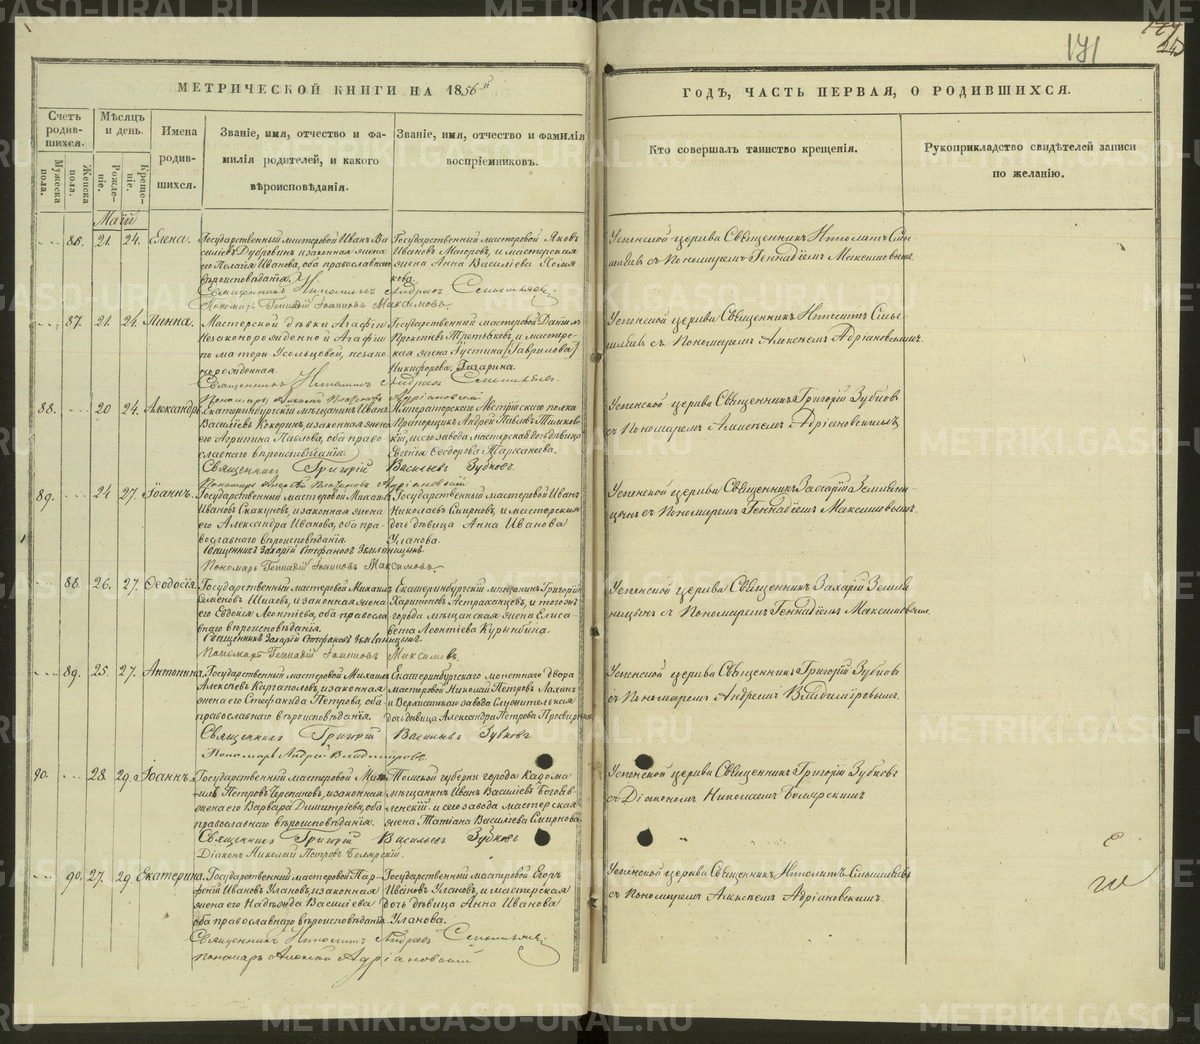 171
МЕТРИЧЕСКОЙ КНИГИ НА 1856й
ГОДЪ, ЧАСТЬ ПЕРВАЯ, О РОДИВШИХСЯ.
Счетъ родив-
шихся.
Мужеска пола.
Женска пола.
Мѣсяцъ и день.
Рожде-
ніе.
Креще-
ніе.
Имена
родив-
шихся.
Званіе, имя, отчество и фа-
милія родителей, и какого
вѣроисповѣданія.
Званіе, имя, отчество и фамилія
воспріемниковъ.
Кто совершалъ таинство крещенія.
Рукоприкладство свидѣтелей записи
по желанію.
Маій
86. 21. 24. Елена.
Государственный мастеровой Иванъ Ва
силіевъ Дубровинъ, и законная жена
его Пелагія Иванова, оба православнаго
вѣроисповѣданія.
Государственный мастеровой Яковъ
Ивановъ Маюровъ, и мастерская
жена Анна Василіева
Священникъ Ипполитъ Андреевъ
Пономарь Геннадій Іоанновъ Максимовъ
Успенской церкви Священникъ Ипполитъ
съ Пономаремъ Геннадіемъ Максимовымъ.
87. 21. 24. Минна.
Мастерской дѣвки Агафіи
Незаконорожденной Агафіи
по матери Усольцовой, незако-
норожденная.
Государственный мастеровой Даніилъ
Прокопіевъ Третьяковъ, и мастерс-
кая жена Іустина (Гаврилова)
Никифорова, Гагарина.
Священникъ Ипполитъ Андреевъ
Пономарь Алексѣй Адріановскій
Успенской церкви Священникъ Ипполитъ
съ Пономаремъ Алексѣемъ Адріановскимъ.
88. 20 24. Александръ.
Екатеринбургскій мѣщанинъ Иванъ
Василіевъ Кокоринъ, и законная жена
его Агрипина Павлова, оба право-
славнаго вѣроисповѣданія.
Императорскаго Австрійскаго полка
Прапорщикъ Андрей Павловъ
и сего завода мастерская дочь дѣвица
Евгенія Ѳеодорова
Священникъ Григорій Васильевъ Зубковъ.
Пономарь Алексѣй Адріановскій
Успенской церкви Священникъ Григорій Зубковъ
съ Пономаремъ Алексѣемъ Адріановскимъ.
89. 24 27. Іоаннъ.
Государственный мастеровой Михаилъ
Ивановъ Скакуновъ, и законная жена
его Александра Иванова, оба пра-
вославнаго вѣроисповѣданія.
Государственный мастеровой Иванъ
Николаевъ Смирновъ, и мастерская
дочь дѣвица Анна Иванова
Уланова.
Священникъ Захарій Стефановъ Земляницынъ.
Пономарь Геннадій Іоанновъ Максимовъ.
Успенской церкви Священникъ Захарій Земляни-
цынъ съ Пономаремъ Геннадіемъ Максимовымъ.
88. 26. 27. Ѳеодосія.
Государственный мастеровой Михаилъ
Семеновъ Шиховъ, и законная жена
его Евдокія Леонтіева, оба правосла-
внаго вѣроисповѣданія.
Екатеринбургскій мѣщанинъ Григорій
Харитоновъ Астраханцевъ, и того жъ
города мѣщанская жена Елиса-
вета Леонтіева Курынбина.
Священникъ Захарій Стефановъ Земляницынъ.
Пономарь Геннадій Іоанновъ Максимовъ.
Успенской церкви Священникъ Захарій Земля-
ницынъ съ Пономаремъ Геннадіемъ Максимовымъ.
89. 25. 27. Антонина.
Государственный мастеровой Михаилъ
Алексѣевъ Каргаполовъ, и законная
жена его Стефанида Петрова, оба
православнаго вѣроисповѣданія.
Екатеринбургскаго монетнаго двора
мастеровой Николай Петровъ Лахинъ
и Верхисетскаго завода служительская
дочь дѣвица Александра Петрова
Священникъ Григорій Васильевъ Зубковъ
Пономарь Андрей Владимировъ
Успенской церкви Священникъ Григорій Зубковъ
съ Пономаремъ Андреемъ Владиміровымъ.
90. 28. 29. Іоаннъ.
Государственный мастеровой Миха-
илъ Петровъ Черепановъ, и законная
жена его Варвара Димитріева, оба
православнаго вѣроисповѣданія.
Томской губерніи города Кадома
мѣщанинъ Иванъ Василіевъ Богояв-
ленскій и сего завода мастерская
жена Татіана Василіева Смирнова.
Священникъ Григорій Васильевъ Зубковъ
Діаконъ Николай Петровъ Боляр­скій.
Успенской церкви Священникъ Григорій Зубковъ
съ Діакономъ Николаемъ Болярскимъ
90. 27. 29. Екатерина.
Государственный мастеровой Пар-
феній Ивановъ Улановъ, и законная
жена его Надѣжда Василіева
оба православнаго вѣроисповѣданія.
Государственный мастеровой Егоръ
Ивановъ Улановъ, и мастерская
дочь дѣвица Анна Иванова
Уланова.
Священникъ Ипполитъ Андреевъ
Пономарь Алексѣй Адріановскій
Успенской церкви Священникъ Ипполитъ
съ Пономаремъ Алексѣемъ Адріановскимъ.
METRIKI.GASO-URAL.RU